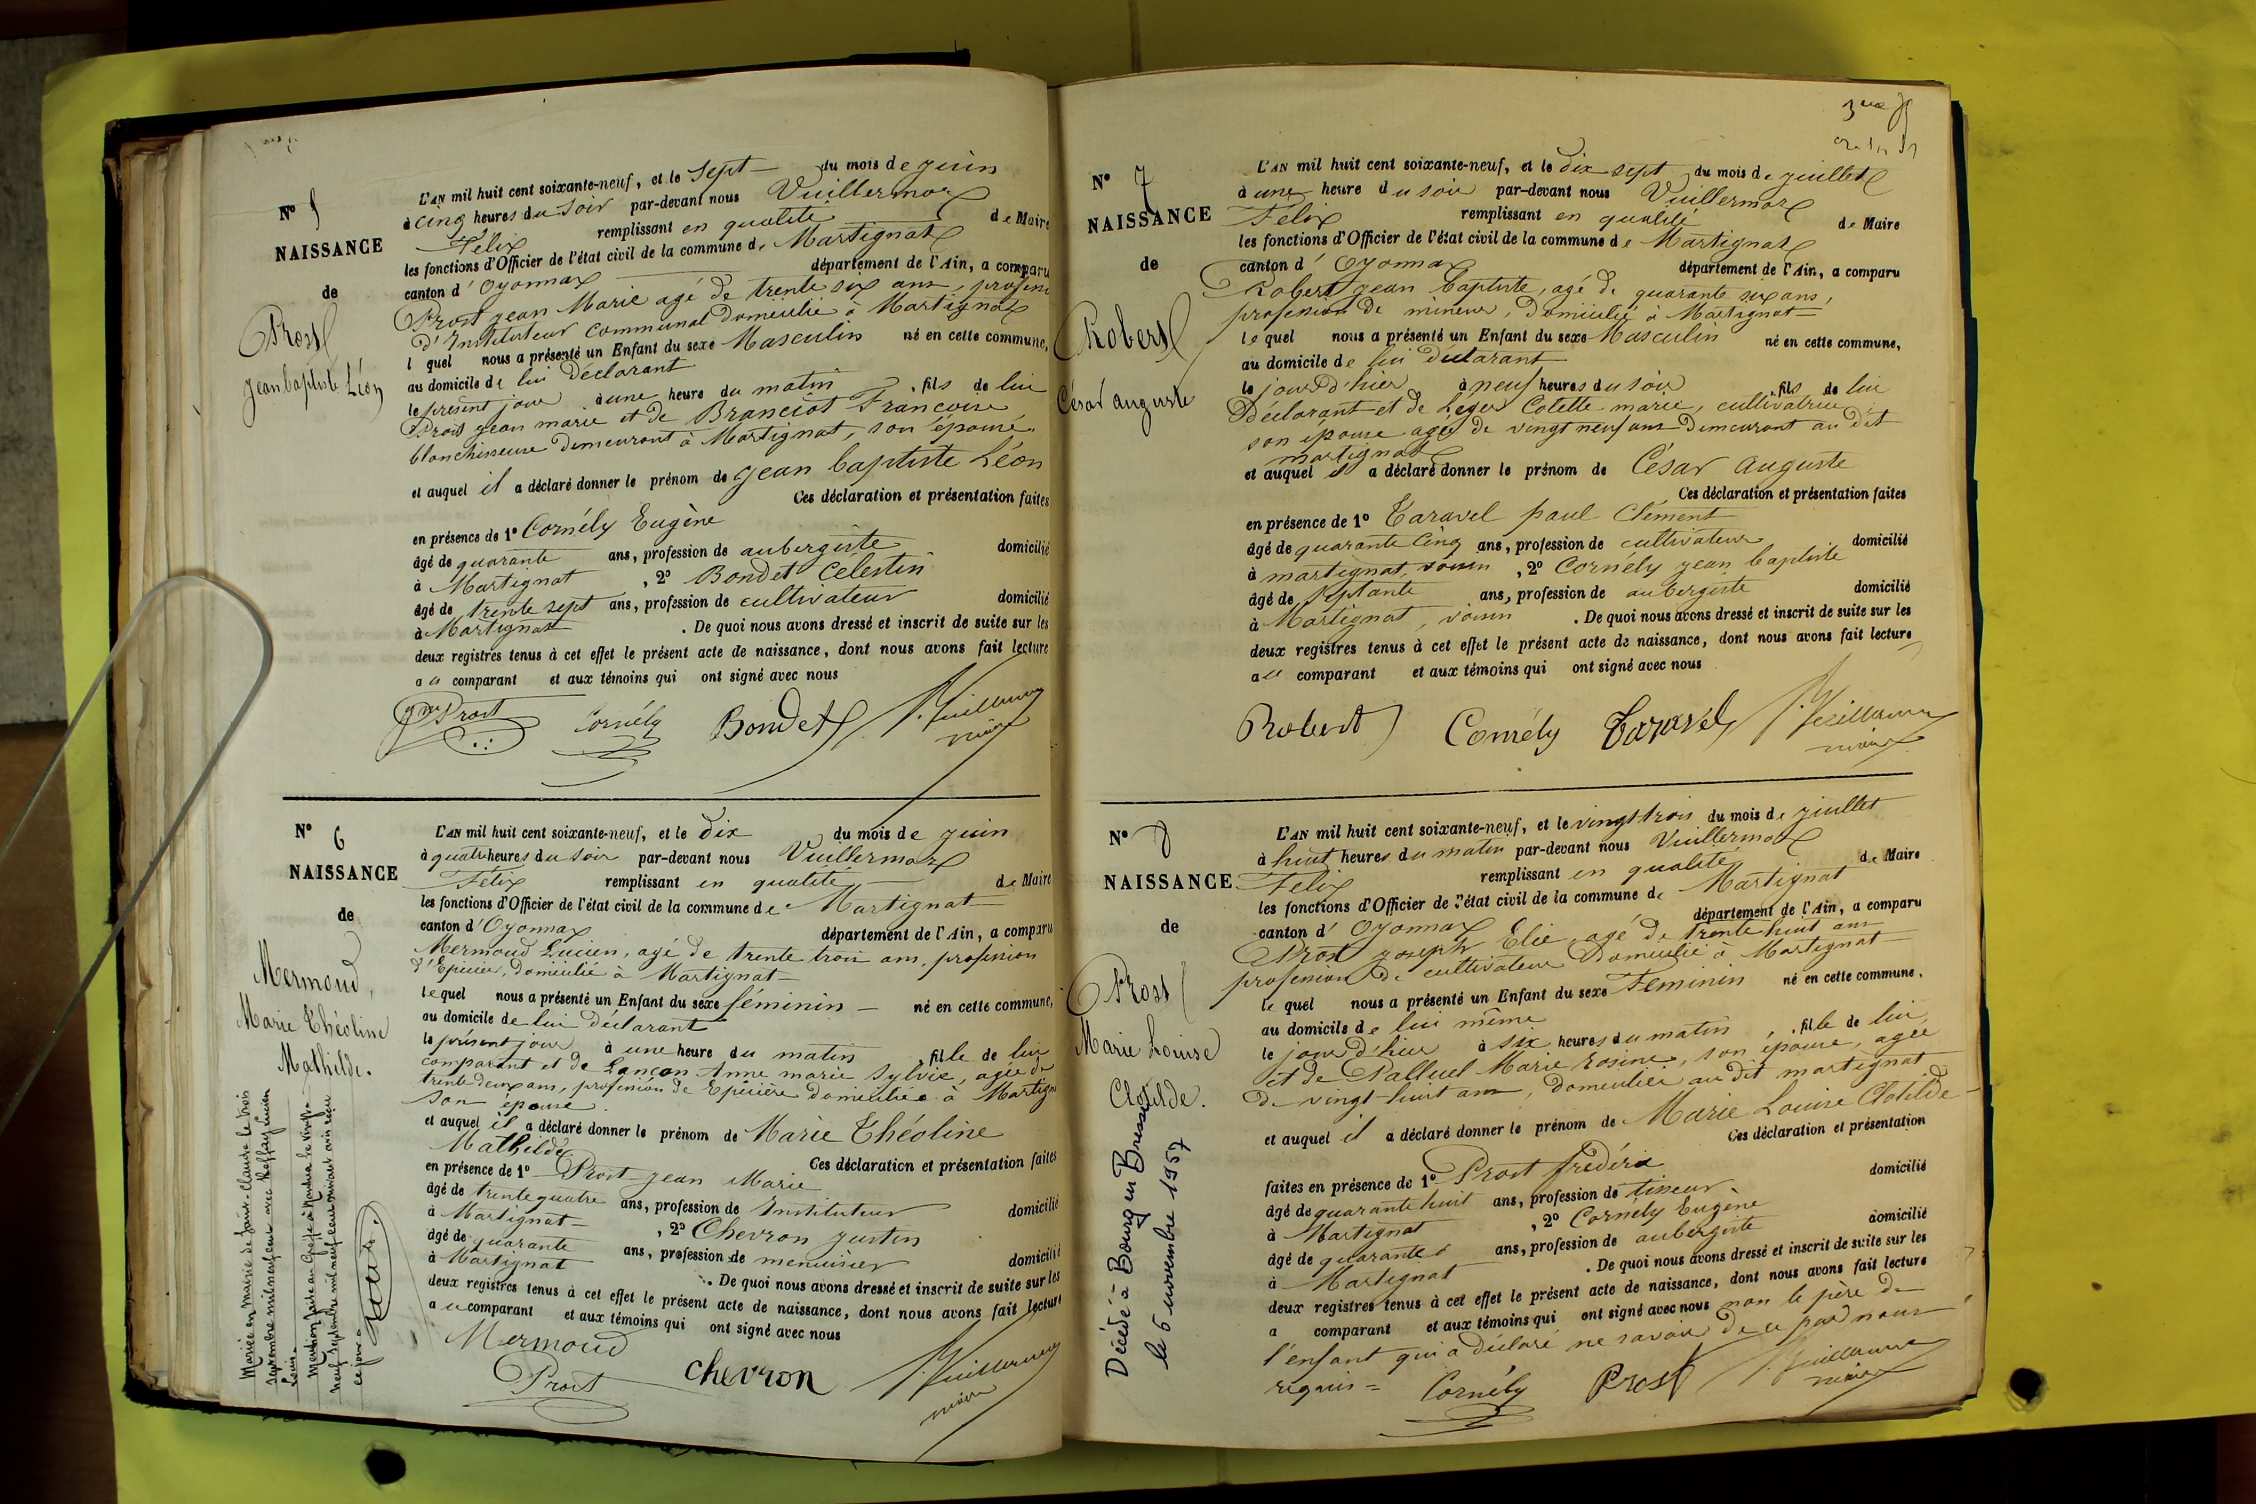 N° 5
NAISSANCE
de
Prost
Jean baptiste Léon
L'AN mil huit cent soixante-neuf, et le Sept du mois de juin
à cinq heures du soir par-devant nous Vuillermoz
Félix remplissant en qualité de Maire
les fonctions d'Officier de l'état civil de la commune de Martignat
canton d'Oyonnax département de l'Ain, a comparu
Prost jean Marie agé de trente six ans, profession
d'Instituteur communal domicilié à Martignat
l quel nous a présenté un Enfant du sexe Masculin né en cette commune,
au domicile de lui Déclarant
le présent jour à une heure du matin, fils de lui
Prost jean marie et de Branciot Françoise
blanchisseuse demeurant à Martignat, son épouse.
et auquel il a déclaré donner le prénom de jean baptiste Léon
Ces déclaration et présentation faites
en présence de 1° Cornély Eugène
âgé de quarante ans, profession de aubergiste domicilié
à Martignat, 2° Bondet Célestin
âgé de trente sept ans, profession de cultivateur domicilié
à Martignat. De quoi nous avons dressé et inscrit de suite sur les
deux registres tenus à cet effet le présent acte de naissance, dont nous avons fait lecture
au comparant et aux témoins qui ont signé avec nous
Prost Cornély Bondet F. Vuillermoz
maire
N° 6
NAISSANCE
de
Mermoud,
Marie Théoline
Mathilde.
Mariée en mairie de Saint-Claude le trois
septembre mil neuf cent avec
Louis.
Mention faite au Greffe à Nantua le vingt-
neuf septembre mil neuf cent suivant avis reçu
ce jour.
L'AN mil huit cent soixante-neuf, et le dix du mois de juin
à quatre heures du soir par-devant nous Vuillermoz
Félix remplissant en qualité de Maire
les fonctions d'Officier de l'état civil de la commune de Martignat
canton d'Oyonnax département de l'Ain, a comparu
Mermoud Lucien, agé de trente trois ans, profession
d'Epicier, domicilié à Martignat
lequel nous a présenté un Enfant du sexe féminin né en cette commune,
au domicile de lui Déclarant
le présent jour à une heure du matin, fille de lui
comparant et de Lançon Anne marie Sylvie, agée de
trente deux ans, profession de Epicière domiciliée à Martignat
son épouse.
et auquel il a déclaré donner le prénom de Marie Théoline
Mathilde Ces déclaration et présentation faites
en présence de 1° Prost jean Marie
âgé de trente quatre ans, profession de Instituteur domicilié
à Martignat, 2° Chevron justin
âgé de quarante ans, profession de menuisier domicilié
à Martignat. De quoi nous avons dressé et inscrit de suite sur les
deux registres tenus à cet effet le présent acte de naissance, dont nous avons fait lecture
au comparant et aux témoins qui ont signé avec nous
Mermoud
Prost chevron F. Vuillermoz
maire
N° 7
NAISSANCE
de
Robert
César auguste
L'AN mil huit cent soixante-neuf, et le Dix sept du mois de juillet
à une heure du soir par-devant nous Vuillermoz
Félix remplissant en qualité de Maire
les fonctions d'Officier de l'état civil de la commune de Martignat
canton d'Oyonnax département de l'Ain, a comparu
Robert jean baptiste, agé de quarante six ans,
profession de mineur, domicilié à Martignat
le quel nous a présenté un Enfant du sexe Masculin né en cette commune,
au domicile de lui déclarant
le jour d'hier à neuf heures du soir, fils de lui
Déclarant et de Léger Colette marie, cultivatrice
son épouse agée de vingt neuf ans demeurant au dit
martignat
et auquel il a déclaré donner le prénom de César auguste
Ces déclaration et présentation faites
en présence de 1° Taravel paul Clément
âgé de quarante cinq ans, profession de cultivateur domicilié
à martignat, voisin, 2° Cornély jean baptiste
âgé de septante ans, profession de aubergiste domicilié
à Martignat, voisin. De quoi nous avons dressé et inscrit de suite sur les
deux registres tenus à cet effet le présent acte de naissance, dont nous avons fait lecture
au comparant et aux témoins qui ont signé avec nous
Robert Cornély Taravel F. Vuillermoz
maire
N° 8
NAISSANCE
de
Prost
Marie Louise
Clotilde.
Décédé à Bourg en Bresse
le 6 novembre 1957
L'AN mil huit cent soixante-neuf, et le vingt trois du mois de juillet
à huit heures du matin par-devant nous Vuillermoz
Félix remplissant en qualité de Maire
les fonctions d'Officier de l'état civil de la commune de Martignat
canton d'Oyonnax département de l'Ain, a comparu
Prost joseph Elie, agé de trente huit ans
profession de cultivateur domicilié à Martignat
le quel nous a présenté un Enfant du sexe Féminin né en cette commune.
au domicile de lui même
le jour d'hier à six heures du matin, fille de lui
et de Palluel Marie rosine, son épouse, agée
de vingt-huit ans, domiciliée au dit martignat
et auquel il a déclaré donner le prénom de Marie Louise Clotilde
Ces déclaration et présentation
faites en présence de 1° Prost frédéric domicilié
âgé de quarante huit ans, profession de tisseur
à Martignat, 2° Cornély Eugène
âgé de quarante ans, profession de aubergiste domicilié
à Martignat. De quoi nous avons dressé et inscrit de suite sur les
deux registres tenus à cet effet le présent acte de naissance, dont nous avons fait lecture
a comparant et aux témoins qui ont signé avec nous non le père de
l'enfant qui a déclaré ne savoir de ce par nous
requis = Cornély Prost F. Vuillermoz
maire